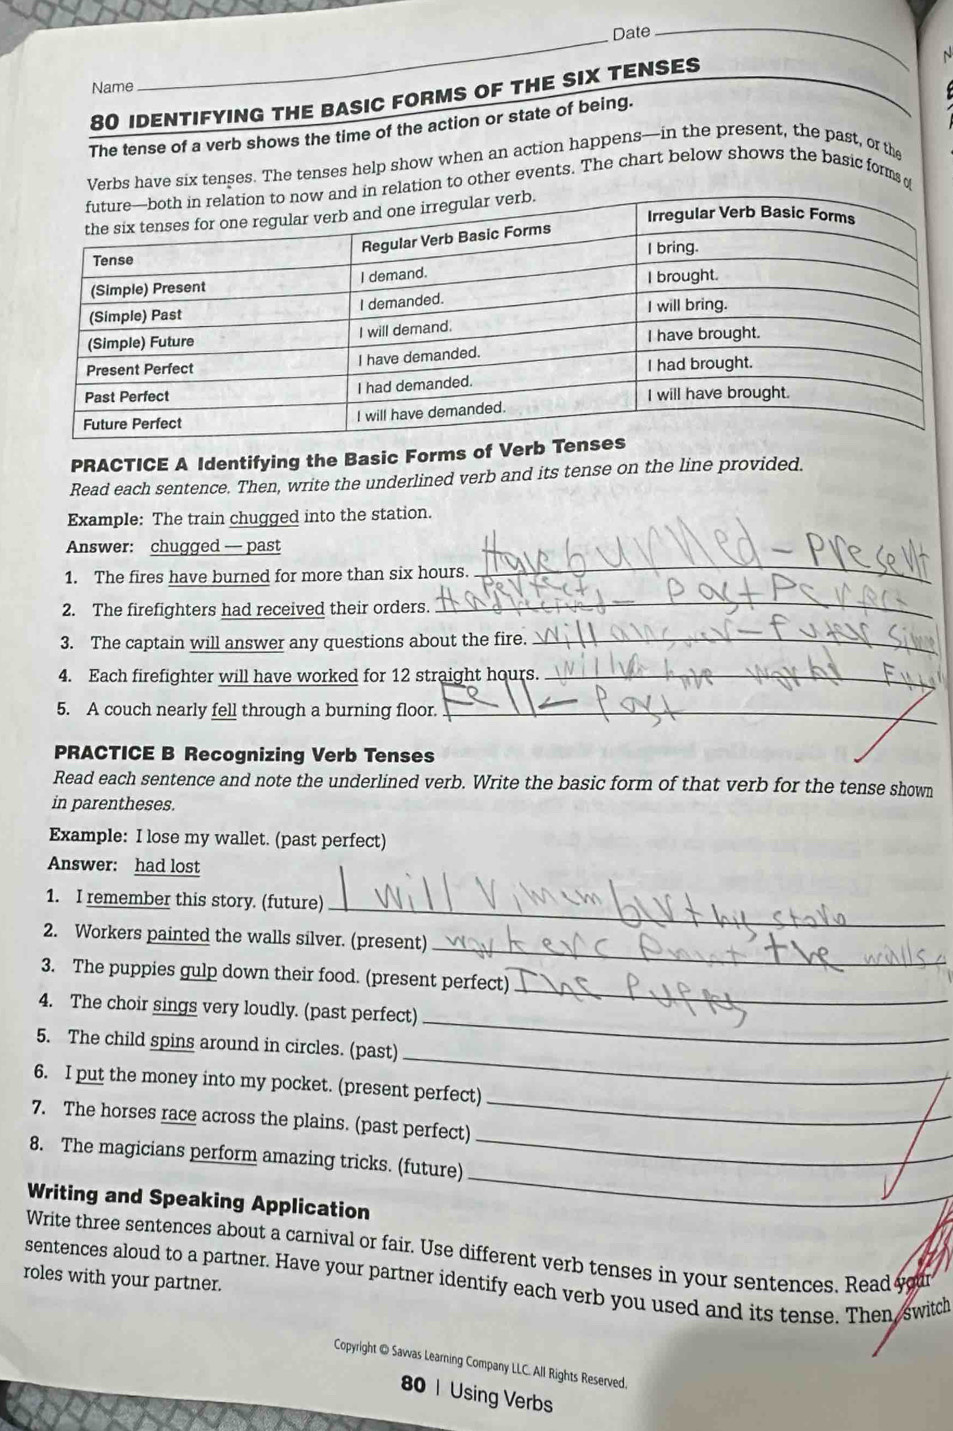 Date
Name
80 IDENTIFYING THE BASIC FORMS OF THE SIX TENSES
The tense of a verb shows the time of the action or state of being.
Verbs have six tenses. The tenses help show when an action happens—in the present, the past, or the
future—both in relation to now and in relation to other events. The chart below shows the basic forms of
the six tenses for one regular verb and one irregular verb.
Tense Regular Verb Basic Forms Irregular Verb Basic Forms
(Simple) Present I demand. I bring.
(Simple) Past I demanded. I brought.
(Simple) Future I will demand. I will bring.
Present Perfect I have demanded. I have brought.
Past Perfect I had demanded. I had brought.
Future Perfect I will have demanded. I will have brought.
PRACTICE A Identifying the Basic Forms of Verb Tenses
Read each sentence. Then, write the underlined verb and its tense on the line provided.
Example: The train chugged into the station.
Answer: chugged — past
1. The fires have burned for more than six hours. Have burned - Present
Perfect
2. The firefighters had received their orders. Had received - Past
3. The captain will answer any questions about the fire. will
4. Each firefighter will have worked for 12 straight hours. have
5. A couch nearly fell through a burning floor. Fell - Past
PRACTICE B Recognizing Verb Tenses
Read each sentence and note the underlined verb. Write the basic form of that verb for the tense shown
in parentheses.
Example: I lose my wallet. (past perfect)
Answer: had lost
1. I remember this story. (future) I will
2. Workers painted the walls silver. (present) the walls
3. The puppies gulp down their food. (present perfect) The
4. The choir sings very loudly. (past perfect)
5. The child spins around in circles. (past)
6. I put the money into my pocket. (present perfect)
7. The horses race across the plains. (past perfect)
8. The magicians perform amazing tricks. (future)
Writing and Speaking Application
Write three sentences about a carnival or fair. Use different verb tenses in your sentences. Read your
sentences aloud to a partner. Have your partner identify each verb you used and its tense. Then, switch
roles with your partner.
Copyright © Savvas Learning Company LLC. All Rights Reserved.
80 | Using Verbs